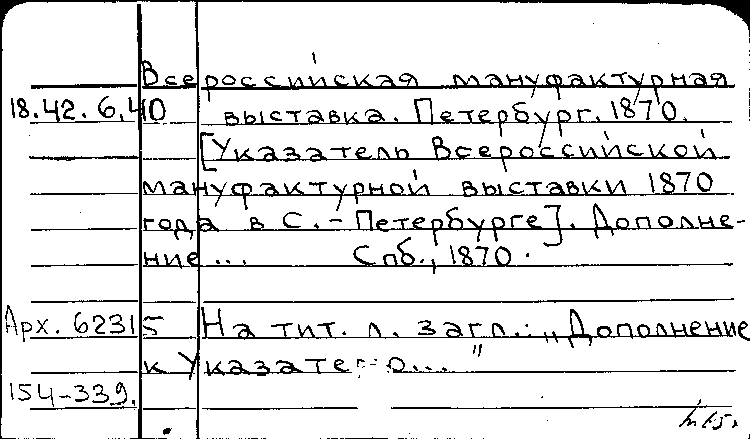 Всероссийская мануфактурная
18.42.6.40 выставка. Петербург. 1870.
[Указатель Всероссийской
мануфактурной выставки 1870
года в С.-Петербурге]. Дополне-
ние... Спб., 1870.
Арх. 62315 На тит. л. загл.: „Дополнение
к Указателю..."
154-339.